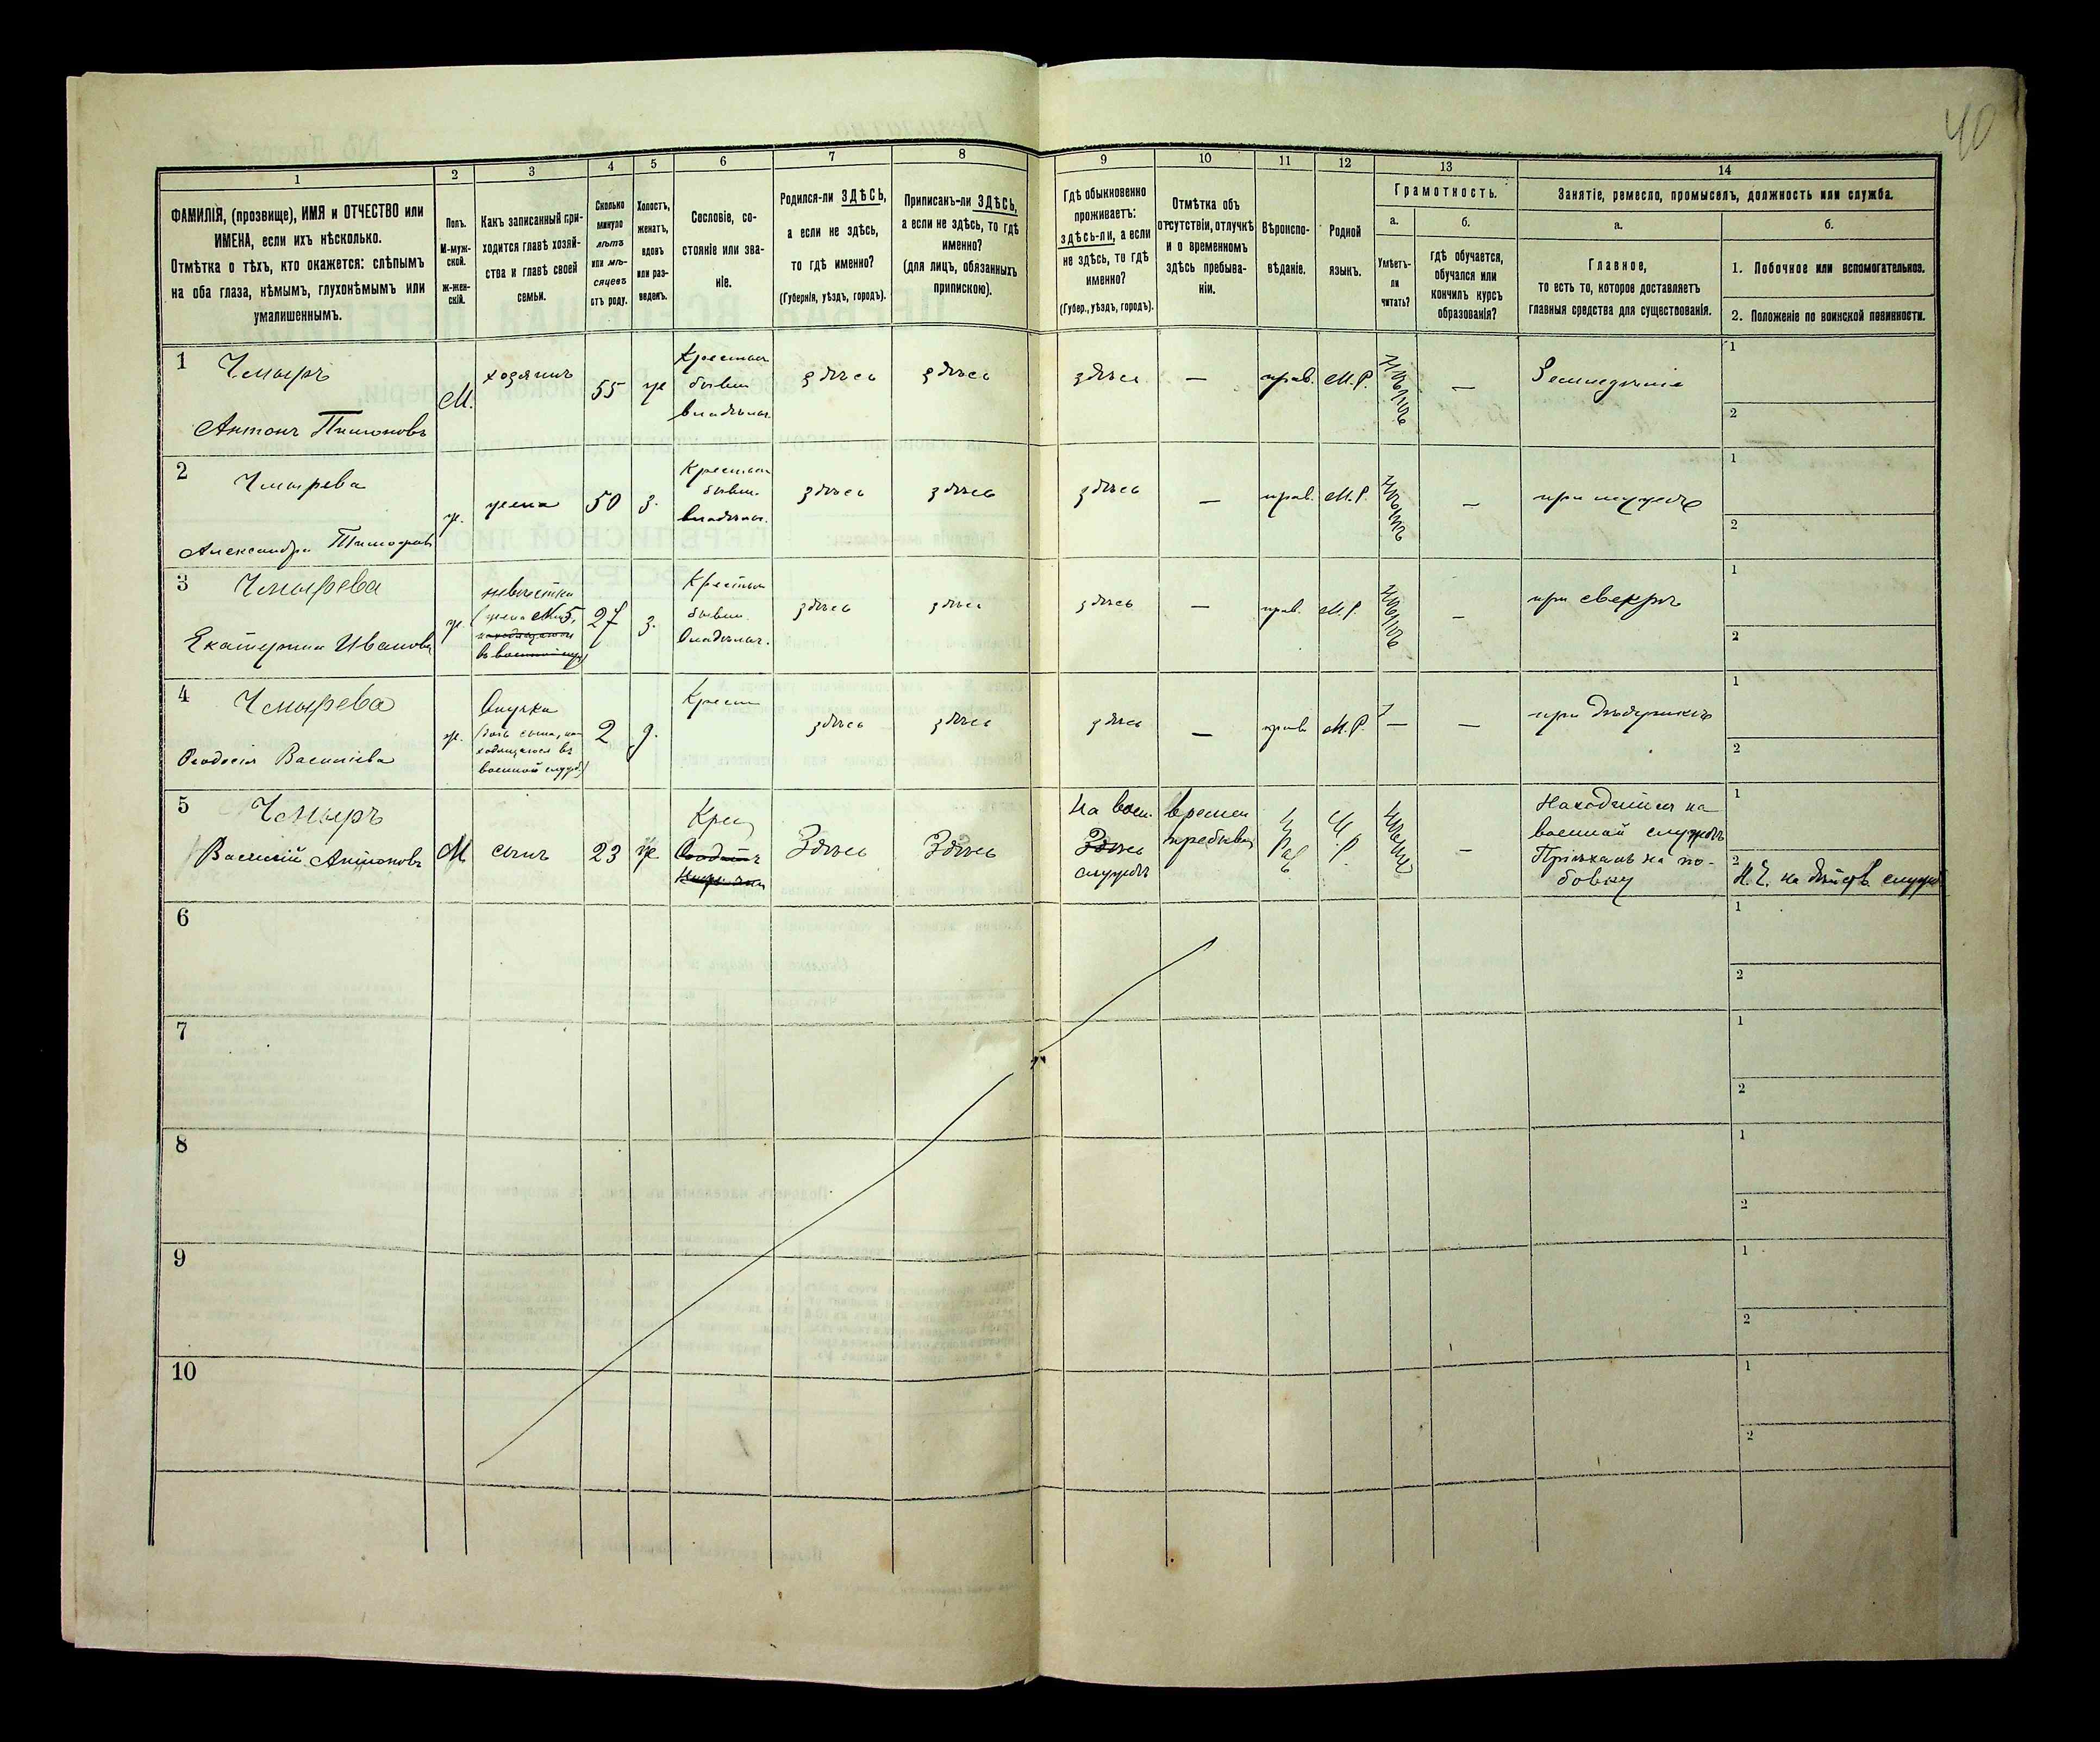 40
1 2 3 4 5 6 7 8 9 10 11 12 13 14
ФАМИЛІЯ, (прозвище), ИМЯ и ОТЧЕСТВО или
ИМЕНА, если ихъ нѣсколько.
Отмѣтка о тѣхъ, кто окажется: слѣпымъ
на оба глаза, нѣмымъ, глухонѣмымъ или
умалишеннымъ.
Полъ.
М-муж-
ской.
Ж-жен-
скій.
Какъ записанный при-
ходится главѣ хозяй-
ства и главѣ своей
семьи.
Сколько
минуло
лѣтъ
или мѣ-
сяцевъ
отъ роду.
Холостъ,
женатъ,
вдовъ
или раз-
веденъ.
Сословіе, со-
стояніе или зва-
ніе.
Родился-ли ЗДѢСЬ,
а если не здѣсь,
то гдѣ именно?
(Губернія, уѣздъ, городъ).
Приписанъ-ли ЗДѢСЬ,
а если не здѣсь, то гдѣ
именно?
(для лицъ, обязанныхъ
припискою).
Гдѣ обыкновенно
проживаетъ:
здѣсь-ли, а если
не здѣсь, то гдѣ
именно?
(Губер., уѣздъ, городъ).
Отмѣтка объ
отсутствіи, отлучкѣ
и о временномъ
здѣсь пребыва-
ніи.
Вѣроиспо-
вѣданіе.
Родной
языкъ.
Грамотность.
а.
Умѣетъ-
ли
читать?
б.
гдѣ обучается,
обучался или
кончилъ курсъ
образованія?
Занятіе, ремесло, промыселъ, должность или служба.
а.
Главное,
то есть то, которое доставляетъ
главныя средства для существованія.
б.
1. Побочное или вспомогательное.
2. Положеніе по воинской повинности.
1
Чмыръ
Антонъ
М.
хозяинъ
55
ж
Крестьян
бывш
владѣльч
здѣсь
здѣсь
здѣсь
—
прав.
М.Р.
—
Земледѣліе
1
2
2
Чмырева
Александра
ж.
жена
50
з.
Крестьян
бывш.
владѣльч.
здѣсь
здѣсь
здѣсь
—
прав.
М.Р.
—
при мужѣ
1
2
3
Чмырева
Екатерина Иванова
ж.
невѣстка
(жена №5,
27
з.
Крестьян
бывш.
владѣльч.
здѣсь
здѣсь
здѣсь
—
прав.
М.Р.
—
при свекрѣ
1
2
4
Чмырева
Ѳеодосія Василіева
ж.
Внучка
(дочь сына, на-
ходящагося въ
военной службѣ)
2
д.
Крест
здѣсь
здѣсь
здѣсь
—
прав
М.Р.
—
—
при дѣдушкѣ
1
2
5
Чмыръ
Василій Антоновъ
М
сынъ
23
ж
Крес
Здѣсь
Здѣсь
На воен.
Здѣсь
службѣ
времен
пребыв
—
Находится на
военной службѣ
Пріѣхалъ на по-
бывку
1
2
Н. Ч. на дѣйств. служб
6
1
2
7
1
2
8
1
2
9
1
2
10
1
2